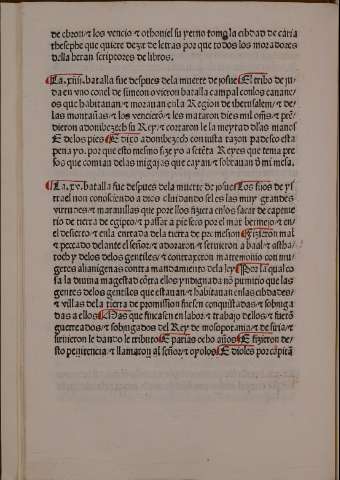 de ebron/ ⁊ los vencio ⁊ othoniel su yerno tomo la cibdad de caria
thesephe que quiere dezir de letras por que todos los moradores
della heran scriptores de libros.
La .xiiij. batalla fue despues de la muerte de josue El tribo de ju/
da en vno conel de simeon ovieron batalla campal con los canane/
os que habitauan/ ⁊ morauan en la Region de iherusalem/ ⁊ de/
las montañas/ ⁊ los vencierō/ ⁊ les mataron diez mil omēs/ ⁊ prē/
dieron adonibezech su Rey/ ⁊ cortaron le la meytad dlas manos
E de los pies E dixo adonibezech con iusta razon padesco esta
pena yo. por que esto mesmo fize yo a setēta Reyes que tema pre
sos que comian delas migajas que cayan/ ⁊ sobrauan đ mi mesa.
La .xv. batalla fue despues dela muerte de josue Los fijos de ys
rael non conosciendo a dios oluidando se les las muy grandes
virtudes/ ⁊ marauillas que por ellos fiziera en los sacar de captiue
rio de tierra de egipto/ ⁊ passar a pie seco por el mar bermejo/ ⁊ en/
el desierto/ ⁊ enla entrada dela tierra de promesion Fizieron mal
⁊ peccado delante el señor/ ⁊ adoraron/ ⁊ seruieron a baal/ ⁊ astha/
roth y delos delos gentiles/ ⁊ contraxeron matremonio con mu/
geres alianigenas contra mandamiento dela ley Por la qual co
sa la diuina magestad cōtra ellos yndignada nō pmitio que las
gentes delos gentiles que estauan/ ⁊ habitauan en las cibdades/
⁊ villas dela tierra de promission fuesen conquistadas/ ⁊ sobiuga
das a ellos Mas que fincasen en labor/ ⁊ trabajo dellos/ ⁊ fuerō
guerreados/ ⁊ sobiugados del Rey de mesopotania/ ⁊ de siria/ ⁊
siruieron le dando le tributo E parias ocho años E fizieron de/
sto penitencia/ ⁊ llamaron al señor/ ⁊ oyolos E dioles por cápitā